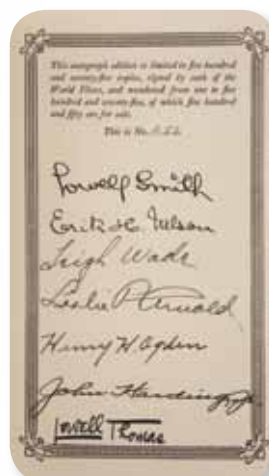 This autograph edition is limited to five hundred
and seventy-five copies, signed by each of the
World Fliers, and numbered from one to five
hundred and seventy-five, of which five hundred
and fifty are for sale.
This is No.
Lowell Smith
Erik H. Nelson
Leigh Wade
Leslie P. Arnold
Henry H. Ogden
John Harding, Jr.
Lowell Thomas